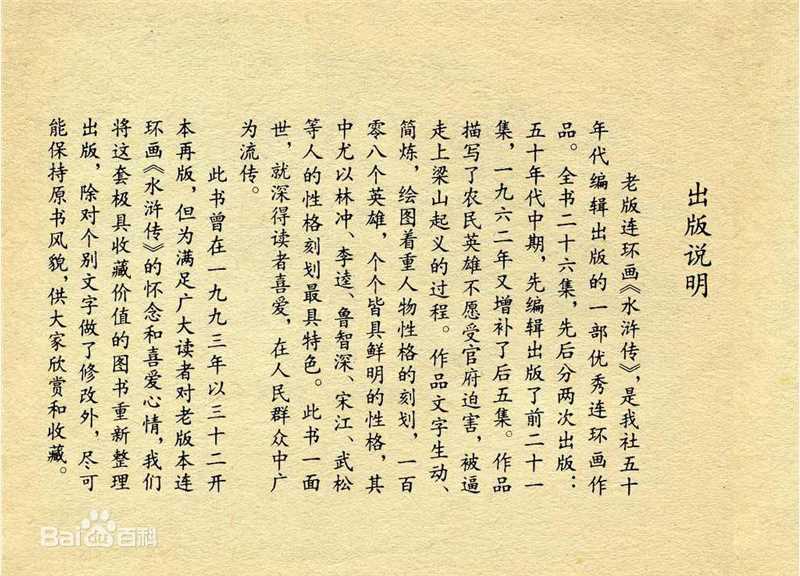 出版说明
老版连环画《水浒传》，是我社五十
年代编辑出版的一部优秀连环画作
品。全书二十六集，先后分两次出版：
五十年代中期，先编辑出版了前二十一
集，一九六二年又增补了后五集。作品
描写了农民英雄不愿受官府迫害，被逼
走上梁山起义的过程。作品文字生动、
简炼，绘图着重人物性格的刻划，一百
零八个英雄，个个皆具鲜明的性格，其
中尤以林冲、李逵、鲁智深、宋江、武松
等人的性格刻划最具特色。此书一面
世，就深得读者喜爱，在人民群众中广
为流传。
此书曾在一九九三年以三十二开
本再版，但为满足广大读者对老版本连
环画《水浒传》的怀念和喜爱心情，我们
将这套极具收藏价值的图书重新整理
出版，除对个别文字做了修改外，尽可
能保持原书风貌，供大家欣赏和收藏。
Bai百科